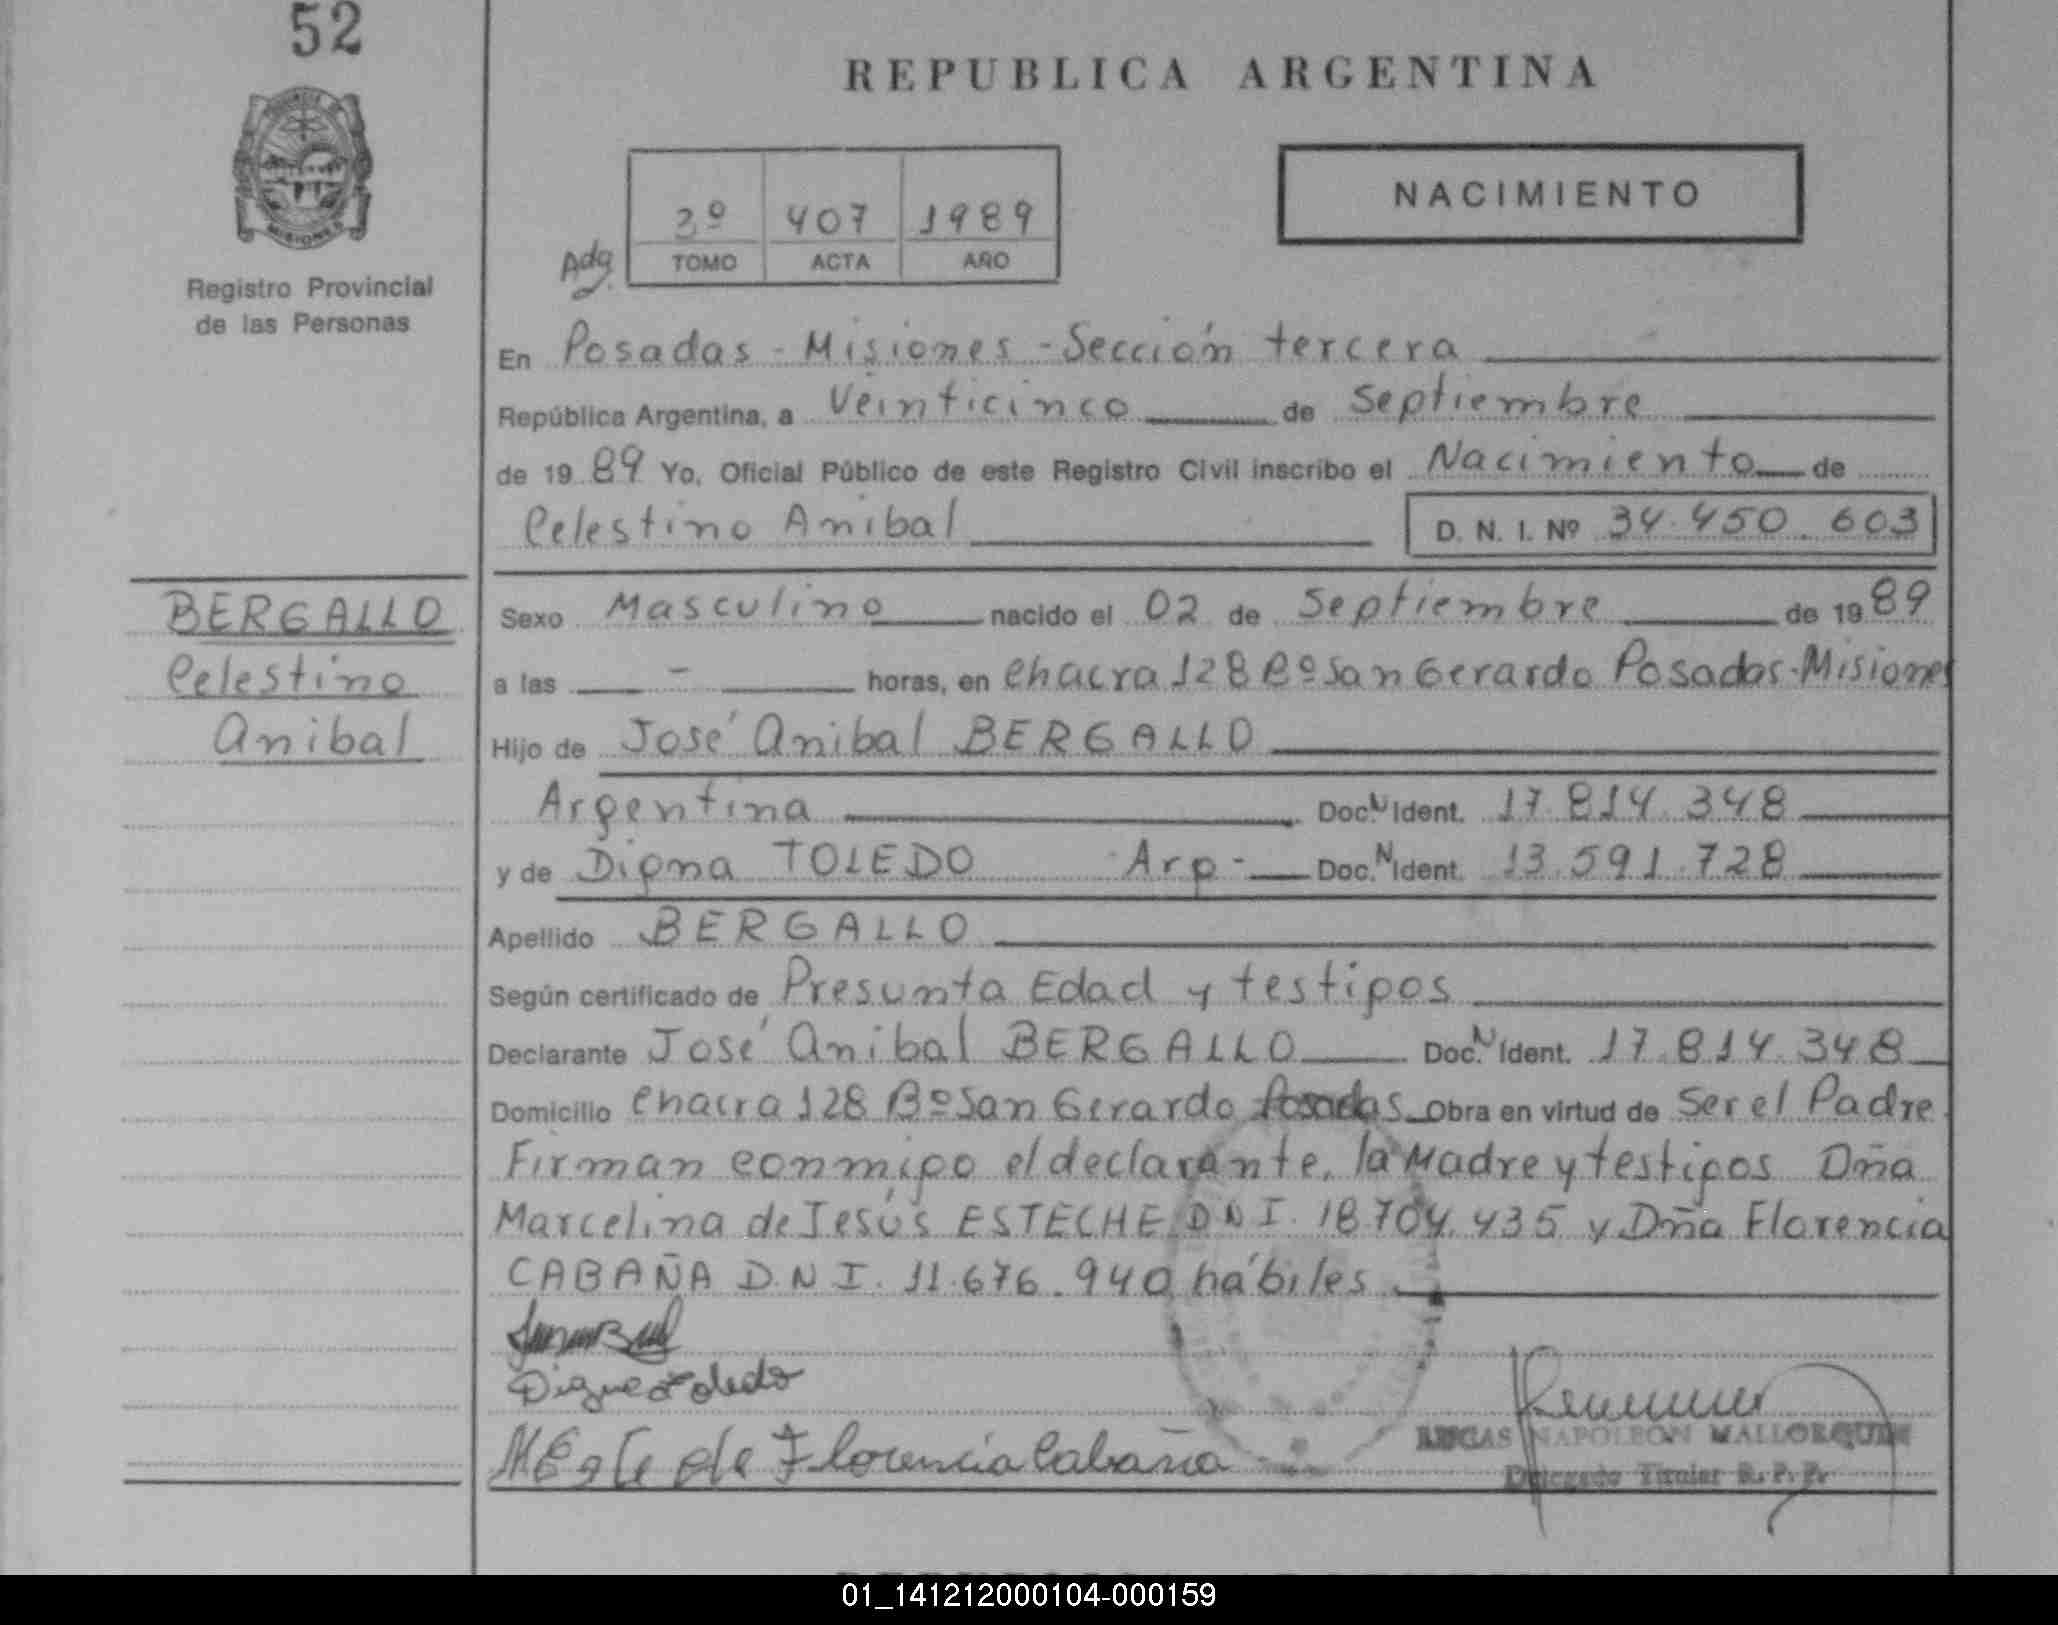 52
REPUBLICA ARGENTINA
MISIONES
Registro Provincial
de las Personas
Adq.
3º 407 1989
TOMO ACTA AÑO
NACIMIENTO
En Posadas - Misiones - Sección tercera
República Argentina, a Veinticinco de Septiembre
de 1989 Yo, Oficial Público de este Registro Civil inscribo el Nacimiento de
Celestino Anibal D. N. I. Nº 34.450.603
BERGALLO
Celestino
Anibal
Sexo Masculino nacido el 02 de Septiembre de 1989
a las - horas, en Chacra 128 Bº San Gerardo Posadas-Misiones
Hijo de José Anibal BERGALLO
Argentina Doc. N Ident. 17.814.348
y de Digna TOLEDO Arg - Doc. N Ident. 13.591.728
Apellido BERGALLO
Según certificado de Presunta Edad y testigos
Declarante José Anibal BERGALLO Doc. N Ident. 17.814.348
Domicilio Chacra 128 Bº San Gerardo Posadas Obra en virtud de Ser el Padre
Firman conmigo el declarante, la Madre y testigos Dña
Marcelina de Jesús ESTECHE D.N.I. 18.704.435 y Dña Florencia
CABAÑA D.N.I. 11.676.940 hábiles
Digna Toledo
Florencia Cabaña
NAPOLEON MALLORQUIN
Delegado Titular R. P. P.
01_141212000104-000159